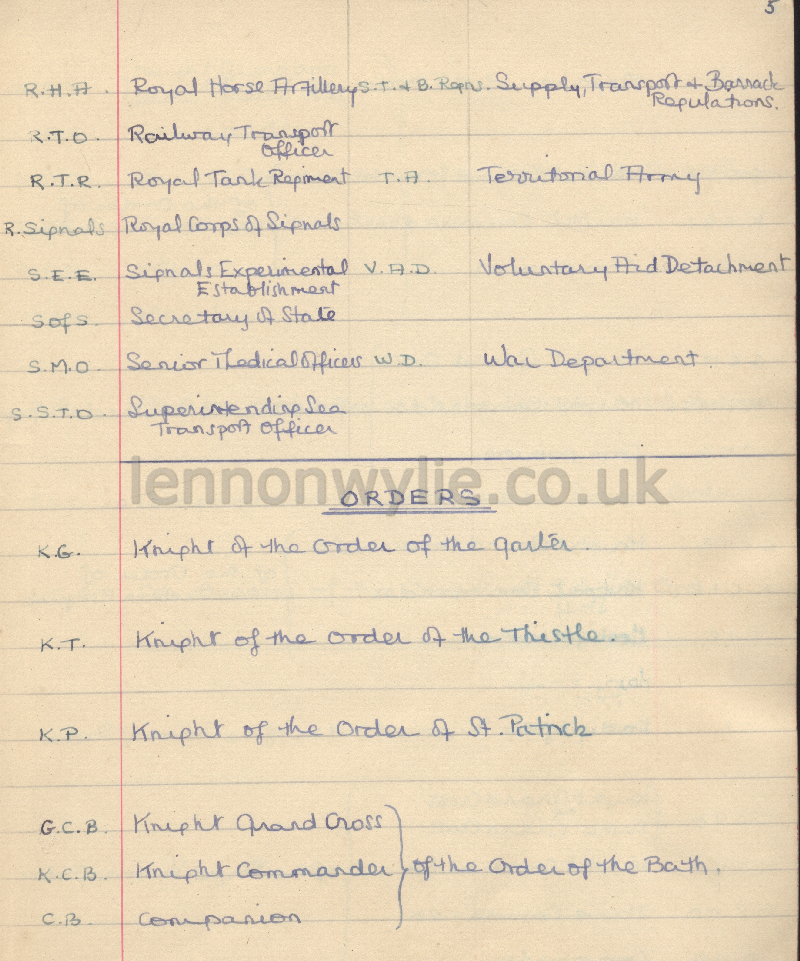 5
R.H.A. Royal Horse Artillery S.T. & B. Regns. Supply, Transport & Barrack
Regulations.
R.T.O. Railway Transport
Officer
R.T.R. Royal Tank Regiment T.A. Territorial Army
R. Signals Royal Corps of Signals
S.E.E. Signals Experimental V.A.D. Voluntary Aid Detachment
Establishment
S of S. Secretary of State
S.M.O. Senior Medical Officers W.D. War Department
S.S.T.O. Superintending Sea
Transport Officer
lennonwylie.co.uk
ORDERS
K.G. Knight of the Order of the Garter.
K.T. Knight of the Order of the Thistle.
K.P. Knight of the Order of St. Patrick
G.C.B. Knight Grand Cross
K.C.B. Knight Commander } of the Order of the Bath.
C.B. Companion